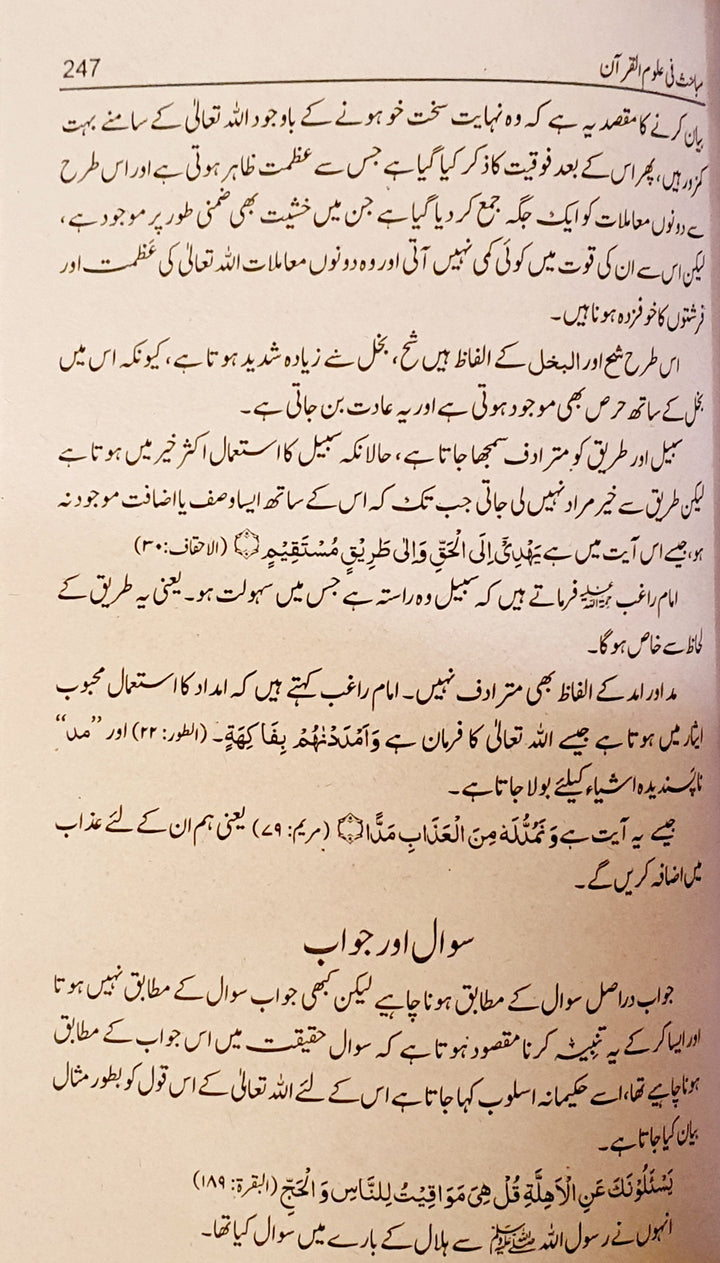 مباحث فی علوم القرآن 247
بیان کرنے کا مقصد یہ ہے کہ وہ نہایت سخت خو ہونے کے باوجود اللہ تعالیٰ کے سامنے بہت
کمزور ہیں، پھر اس کے بعد فوقیت کا ذکر کیا گیا ہے جس سے عظمت ظاہر ہوتی ہے اور اس طرح
سے دونوں معاملات کو ایک جگہ جمع کر دیا گیا ہے جن میں خشیت بھی ضمنی طور پر موجود ہے،
لیکن اس سے ان کی قوت میں کوئی کمی نہیں آتی اور وہ دونوں معاملات اللہ تعالیٰ کی عظمت اور
فرشتوں کا خوفزدہ ہونا ہیں۔
اس طرح شح اور البخل کے الفاظ ہیں شح، بخل سے زیادہ شدید ہوتا ہے، کیونکہ اس میں
بخل کے ساتھ حرص بھی موجود ہوتی ہے اور یہ عادت بن جاتی ہے۔
سبیل اور طریق کو مترادف سمجھا جاتا ہے، حالانکہ سبیل کا استعمال اکثر خیر میں ہوتا ہے
لیکن طریق سے خیر مراد نہیں لی جاتی جب تک کہ اس کے ساتھ ایسا وصف یا اضافت موجود نہ
ہو، جیسے اس آیت میں ہے يَهْدِيْٓ اِلَى الْحَقِّ وَاِلٰى طَرِيْقٍ مُّسْتَقِيْمٍ ۝ (الاحقاف: ۳۰)
امام راغب رحمۃ اللہ علیہ فرماتے ہیں کہ سبیل وہ راستہ ہے جس میں سہولت ہو۔ یعنی یہ طریق کے
لحاظ سے خاص ہوگا۔
مد اور امد کے الفاظ بھی مترادف نہیں۔ امام راغب کہتے ہیں کہ امداد کا استعمال محبوب
ایثار میں ہوتا ہے جیسے اللہ تعالیٰ کا فرمان ہے وَاَمْدَدْنٰهُمْ بِفَاكِهَةٍ۔ (الطور: ۲۲) اور ”مد“
ناپسندیدہ اشیاء کیلئے بولا جاتا ہے۔
جیسے یہ آیت ہے وَنَمُدُّلَهٗ مِنَ الْعَذَابِ مَدًّا ۝ (مریم: ۷۹) یعنی ہم ان کے لئے عذاب
میں اضافہ کریں گے۔
سوال اور جواب
جواب دراصل سوال کے مطابق ہونا چاہیے لیکن کبھی جواب سوال کے مطابق نہیں ہوتا
اور ایسا کر کے یہ تنبیہ کرنا مقصود ہوتا ہے کہ سوال حقیقت میں اس جواب کے مطابق
ہونا چاہیے تھا، اسے حکیمانہ اسلوب کہا جاتا ہے اس کے لئے اللہ تعالیٰ کے اس قول کو بطور مثال
بیان کیا جاتا ہے۔
يَسْئَلُوْنَكَ عَنِ الْاَهِلَّةِ قُلْ هِيَ مَوَاقِيْتُ لِلنَّاسِ وَالْحَجِّ (البقرة: ۱۸۹)
انہوں نے رسول اللہ ﷺ سے ہلال کے بارے میں سوال کیا تھا۔